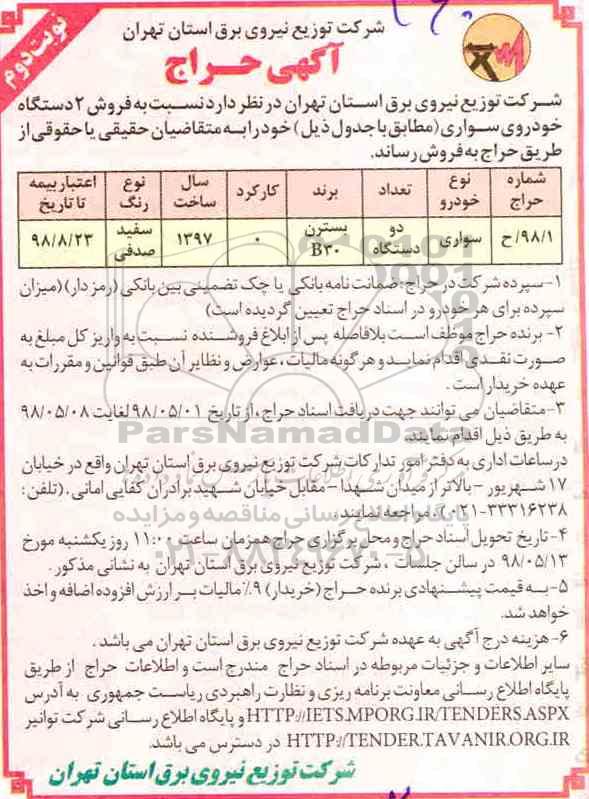 نوبت دوم
شرکت توزیع نیروی برق استان تهران
آگهی حراج
شرکت توزیع نیروی برق استان تهران در نظر دارد نسبت به فروش ۲ دستگاه
خودروی سواری (مطابق با جدول ذیل) خود را به متقاضیان حقیقی یا حقوقی از
طریق حراج به فروش رساند.
شماره حراج نوع خودرو تعداد برند کارکرد سال ساخت نوع رنگ اعتبار بیمه تا تاریخ
۹۸/۱/ح سواری دو دستگاه بسترن B۳۰ ۰ ۱۳۹۷ سفید صدفی ۹۸/۸/۲۳
۱- سپرده شرکت در حراج: ضمانت نامه بانکی یا چک تضمینی بین بانکی (رمز دار) (میزان
سپرده برای هر خودرو در اسناد حراج تعیین گردیده است)
۲- برنده حراج موظف است بلافاصله پس از ابلاغ فروشنده نسبت به واریز کل مبلغ به
صورت نقدی اقدام نماید و هر گونه مالیات، عوارض و نظایر آن طبق قوانین و مقررات به
عهده خریدار است.
۳- متقاضیان می توانند جهت دریافت اسناد حراج، از تاریخ ۹۸/۰۵/۰۱ لغایت ۹۸/۰۵/۰۸
به طریق ذیل اقدام نمایند.
در ساعات اداری به دفتر امور تدارکات شرکت توزیع نیروی برق استان تهران واقع در خیابان
۱۷ شهریور - بالاتر از میدان شهدا - مقابل خیابان شهید برادران کفایی امانی. (تلفن:
۰۲۱-۳۳۳۱۶۲۳۸)، مراجعه نمایند
۴- تاریخ تحویل اسناد حراج و محل برگزاری حراج همزمان ساعت ۱۱:۰۰ روز یکشنبه مورخ
۹۸/۰۵/۱۳ در سالن جلسات، شرکت توزیع نیروی برق استان تهران به نشانی مذکور.
۵- به قیمت پیشنهادی برنده حراج (خریدار) ۹٪ مالیات بر ارزش افزوده اضافه و اخذ
خواهد شد.
۶- هزینه درج آگهی به عهده شرکت توزیع نیروی برق استان تهران می باشد.
سایر اطلاعات و جزئیات مربوطه در اسناد حراج مندرج است و اطلاعات حراج از طریق
پایگاه اطلاع رسانی معاونت برنامه ریزی و نظارت راهبردی ریاست جمهوری به آدرس
HTTP://IETS.MPORG.IR/TENDERS.ASPX و پایگاه اطلاع رسانی شرکت توانیر
HTTP://TENDER.TAVANIR.ORG.IR در دسترس می باشد.
شرکت توزیع نیروی برق استان تهران
ParsNamadData
پایگاه اطلاع رسانی مناقصه و مزایده
۰۲۱-۸۸۳۴۹۶۷۰-۵